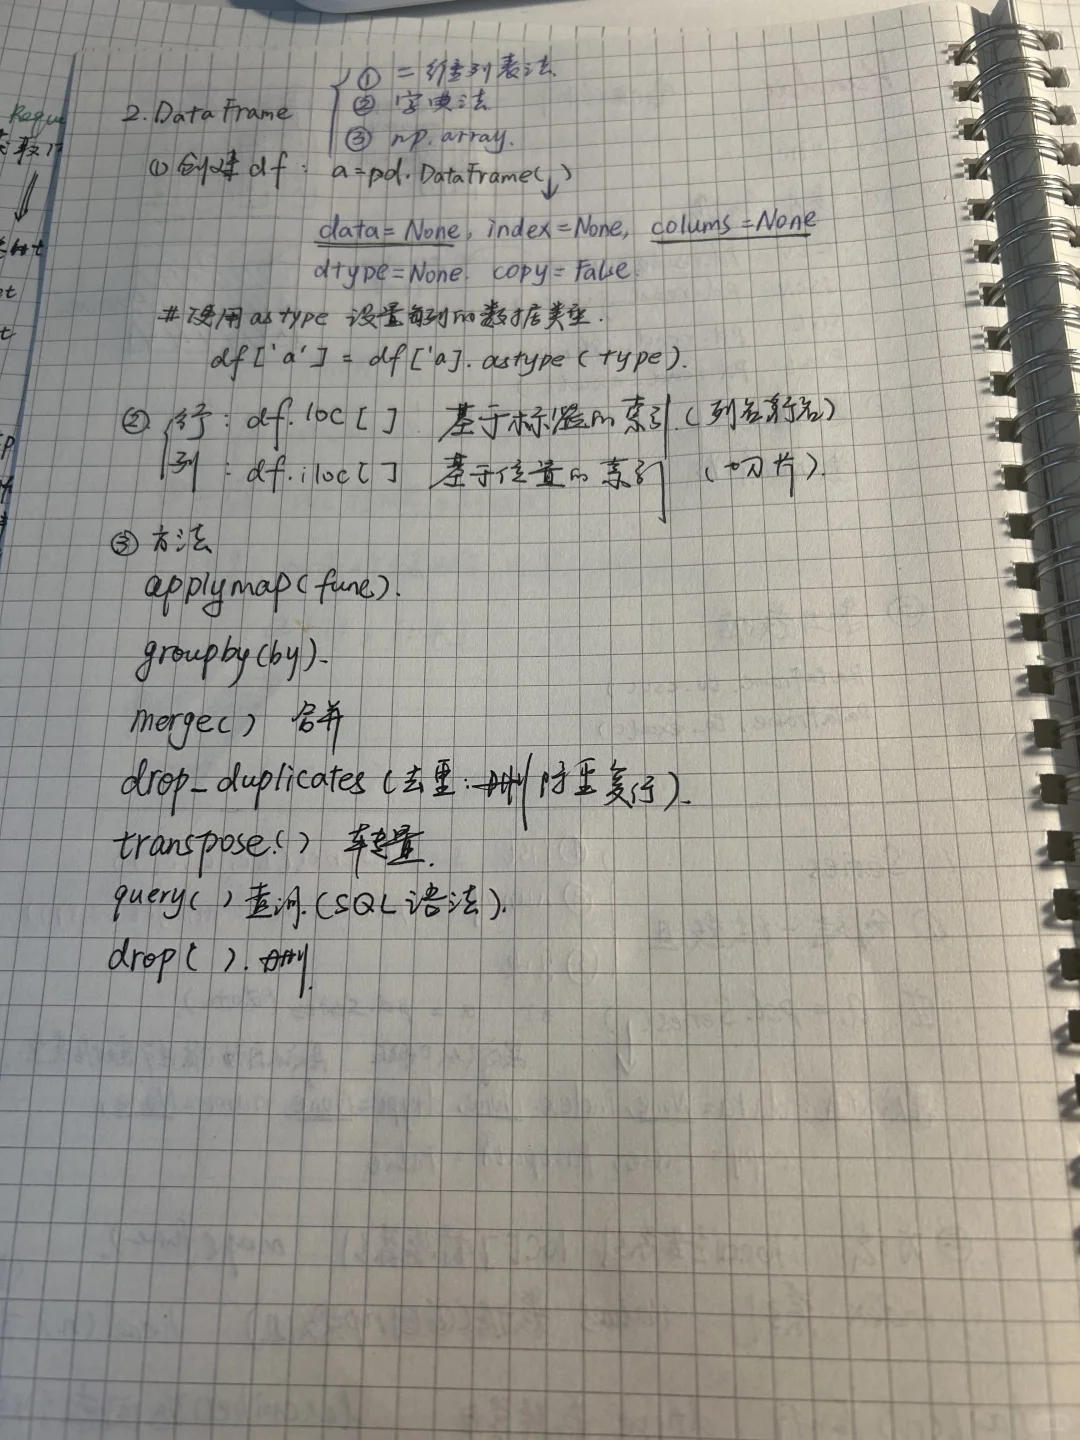 ① 二维列表法
2. DataFrame ② 字典法
③ np.array.
① 创建 df: a=pd.DataFrame( )
data=None, index=None, colums=None
dtype=None. copy=False
#使用astype 设置每列的数据类型.
df['a'] = df['a].astype(type).
② 行: df.loc[ ] 基于标签的索引.(列名行名)
列: df.iloc[ ] 基于位置的索引 (切片).
③ 方法
applymap(func).
groupby(by).
merge( ) 合并
drop_duplicates (去重: 删除重复行).
transpose.( ) 转置.
query( ) 查询.(SQL语法).
drop( ). 删.
Requ